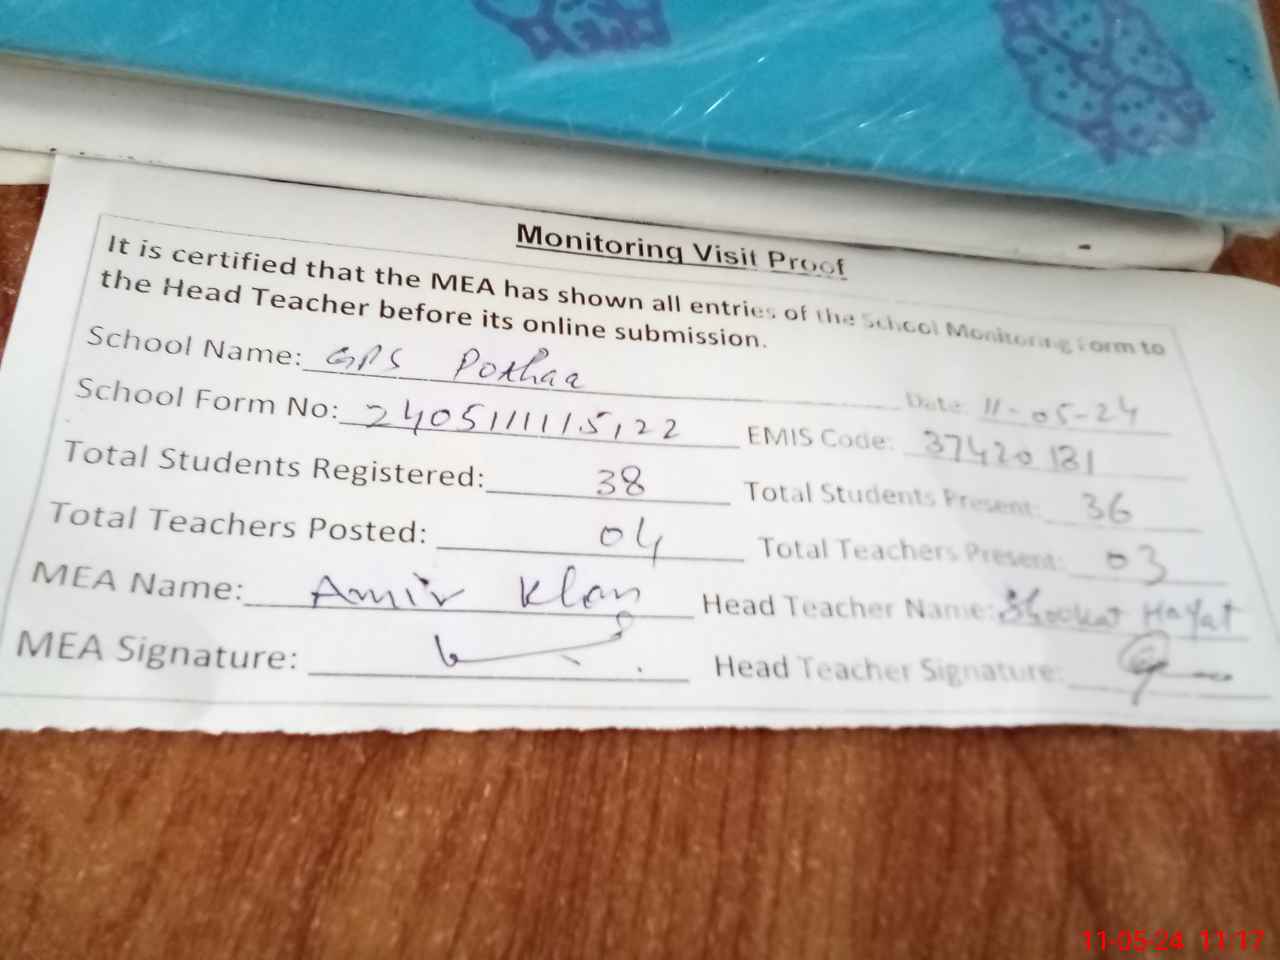 Monitoring Visit Proof
It is certified that the MEA has shown all entries of the School Monitoring Form to
the Head Teacher before its online submission.
School Name: GPS Pothaa Date: 11-05-24
School Form No: 2405111115122 EMIS Code: 37420181
Total Students Registered: 38 Total Students Present: 36
Total Teachers Posted: 04 Total Teachers Present: 03
MEA Name: Amir Khan Head Teacher Name: Shoukat Hayat
MEA Signature: Head Teacher Signature:
11-05-24 11:17